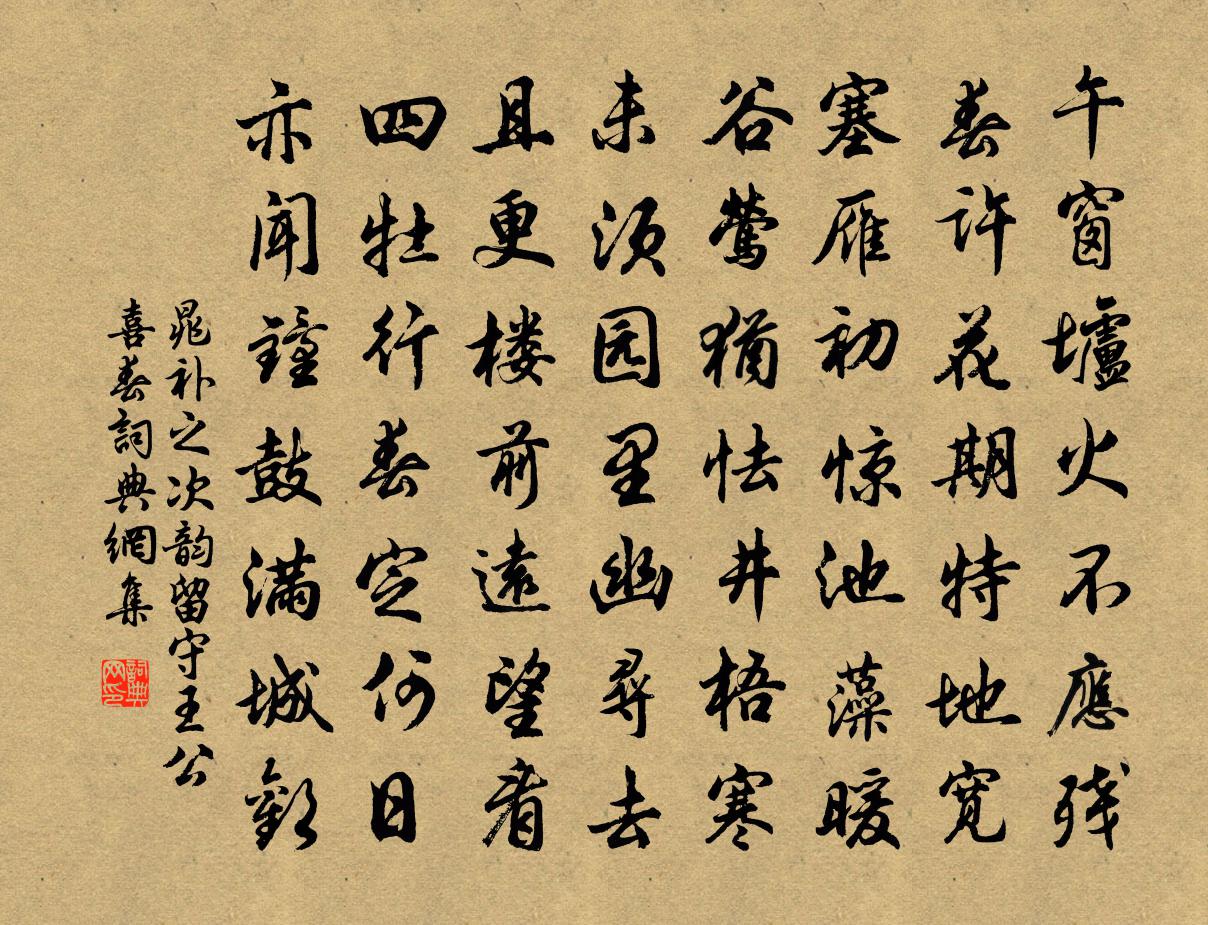 午窗壚火不應残
春许花期特地寛
塞雁初惊池藻暖
谷莺猶怯井梧寒
未须园里幽尋去
且更楼前遠望看
四牡行春定何日
亦闻鐘鼓满城歡
晁补之次韵留守王公
喜春詞典網集
詞典网印